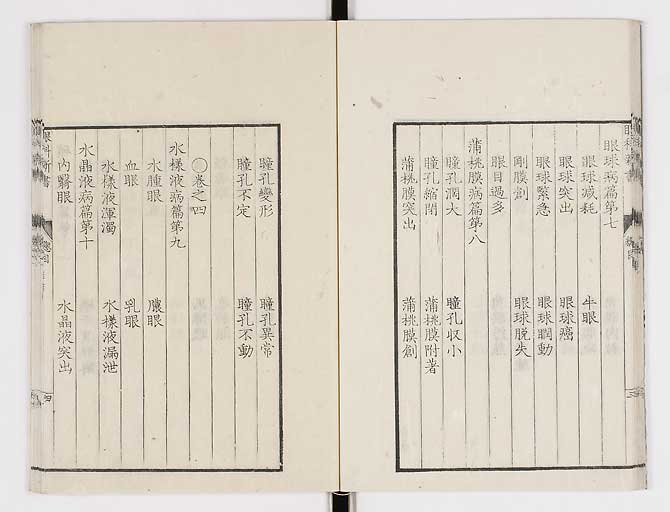 眼球病篇第七
眼球減耗 牛眼
眼球突出 眼球癌
眼球緊急 眼球瞤動
剛膜創 眼球脱失
眼目過多
蒲桃膜病篇第八
瞳孔濶大 瞳孔収小
瞳孔縮閉 蒲桃膜附著
蒲桃膜突出 蒲桃膜創
瞳孔變形 瞳孔異常
瞳孔不定 瞳孔不動
○卷之四
水樣液病篇第九
水腫眼 膿眼
血眼 乳眼
水樣液渾濁 水樣液漏泄
水晶液病篇第十
內翳眼 水晶液突出